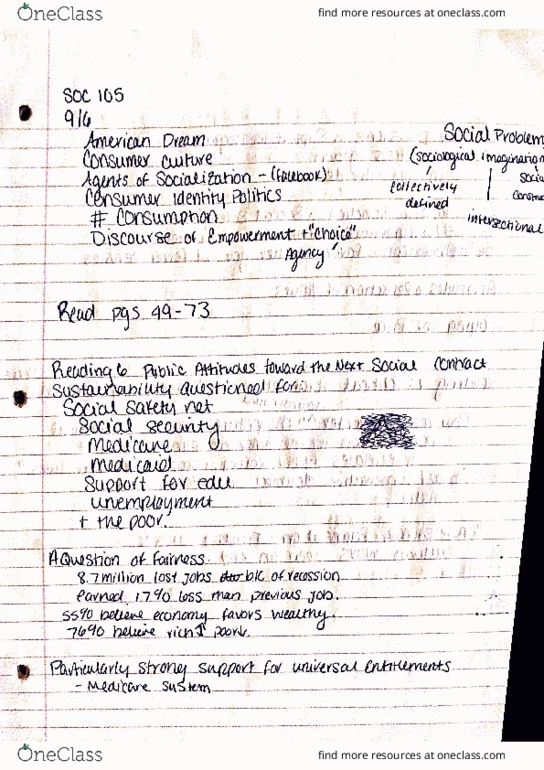 OneClass
find more resources at oneclass.com
SOC 105
9/6
American Dream
Consumer culture
Agents of Socialization - (facebook)
Consumer Identity Politics
# Consumption
Discourse of Empowerment + "Choice"
Agency
Social Problem
(sociological imagination
collectively
defined
socia
constru
intersectional
Read pgs 49-73
Reading 6 Public Attitudes toward the Next Social Contract
Sustainability questioned for:
Social safety net
Social security
Medicare
Medicaid
Support for edu
unemployment
+ the poor.
A Question of Fairness
8.7 million lost jobs b/c of recession
earned 17% less than previous job.
55% believe economy favors wealthy.
76% believe rich↑ poor↓.
Particularly strong support for universal entitlements
- Medicare system
OneClass
find more resources at oneclass.com